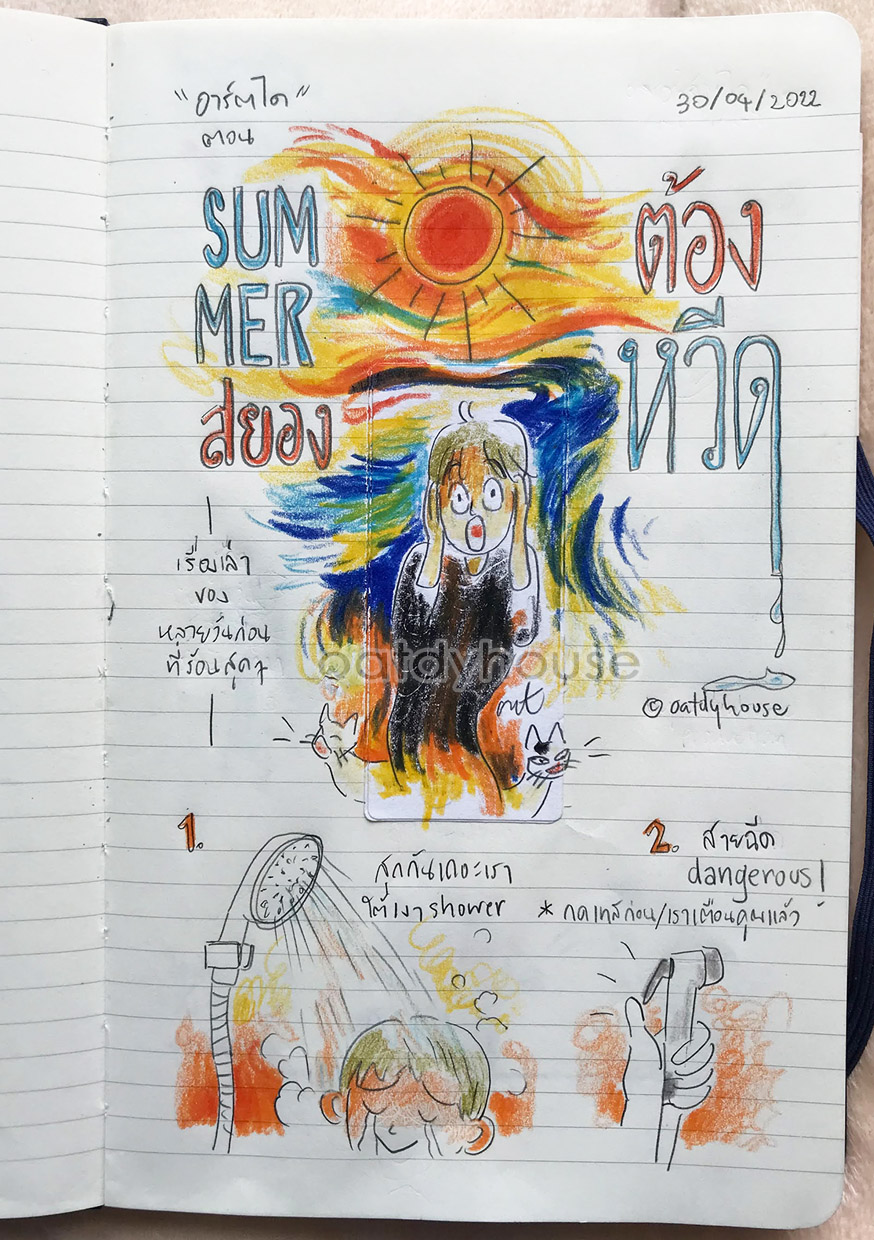 "อาร์ตได"
30/04/2022
ตอน
SUM
MER
สยอง
ต้อง
หวีด
เรื่องเล่า
ของ
หลายวันก่อน
ที่ร้อนสุดๆ
@oatdyhouse
© oatdyhouse
1.
สุกกันเถอะเรา
ใต้เงา shower
2. สายฉีด
dangerous!
* กดเทสก่อน/เราเตือนคุณแล้ว